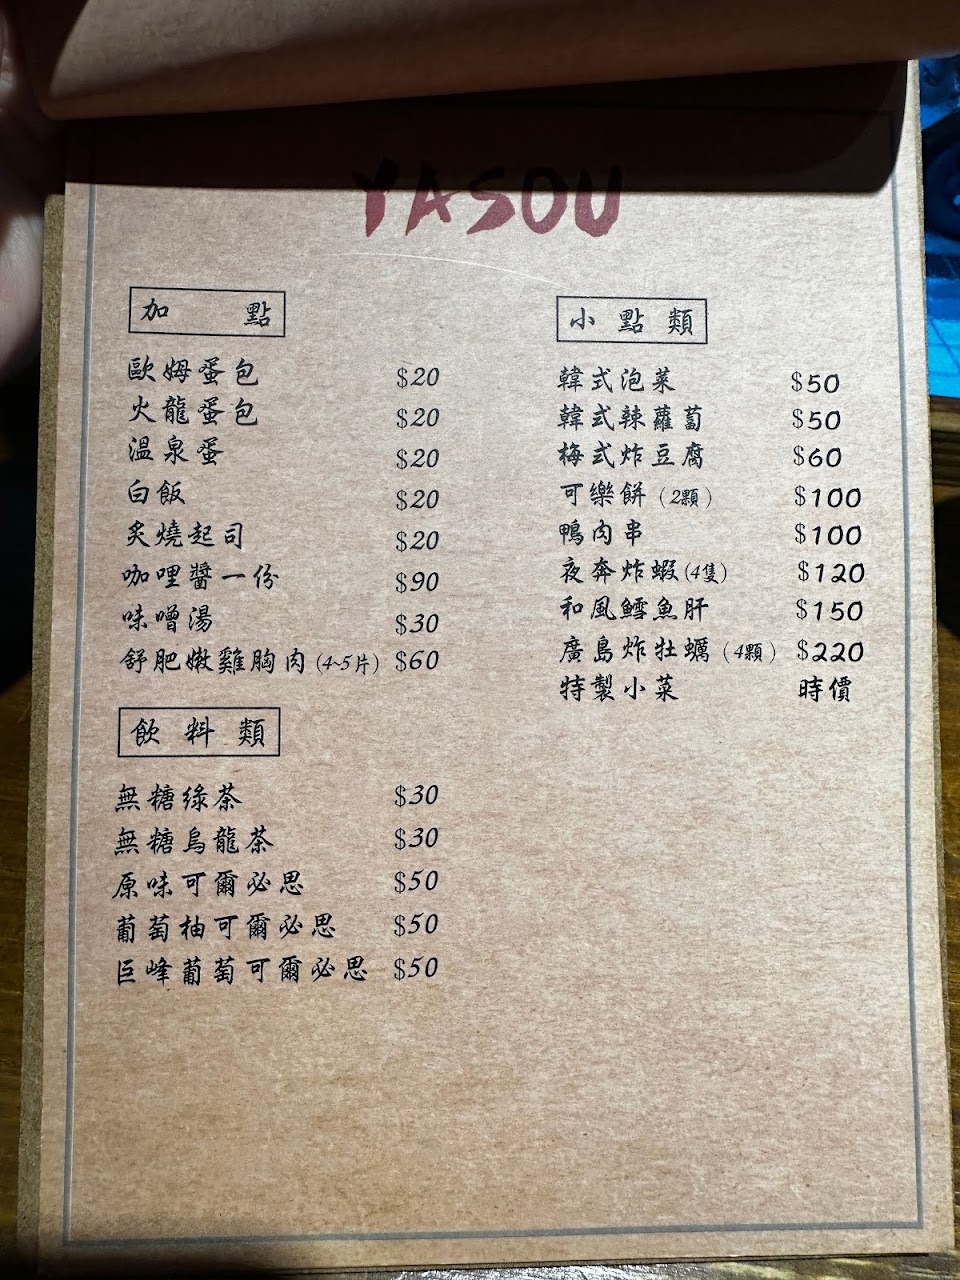 YASOU
加點
歐姆蛋包 $20
火龍蛋包 $20
溫泉蛋 $20
白飯 $20
炙燒起司 $20
咖哩醬一份 $90
味噌湯 $30
舒肥嫩雞胸肉(4~5片) $60
飲料類
無糖綠茶 $30
無糖烏龍茶 $30
原味可爾必思 $50
葡萄柚可爾必思 $50
巨峰葡萄可爾必思 $50
小點類
韓式泡菜 $50
韓式辣蘿蔔 $50
梅式炸豆腐 $60
可樂餅（2顆） $100
鴨肉串 $100
夜奔炸蝦(4隻) $120
和風鱈魚肝 $150
廣島炸牡蠣（4顆） $220
特製小菜 時價